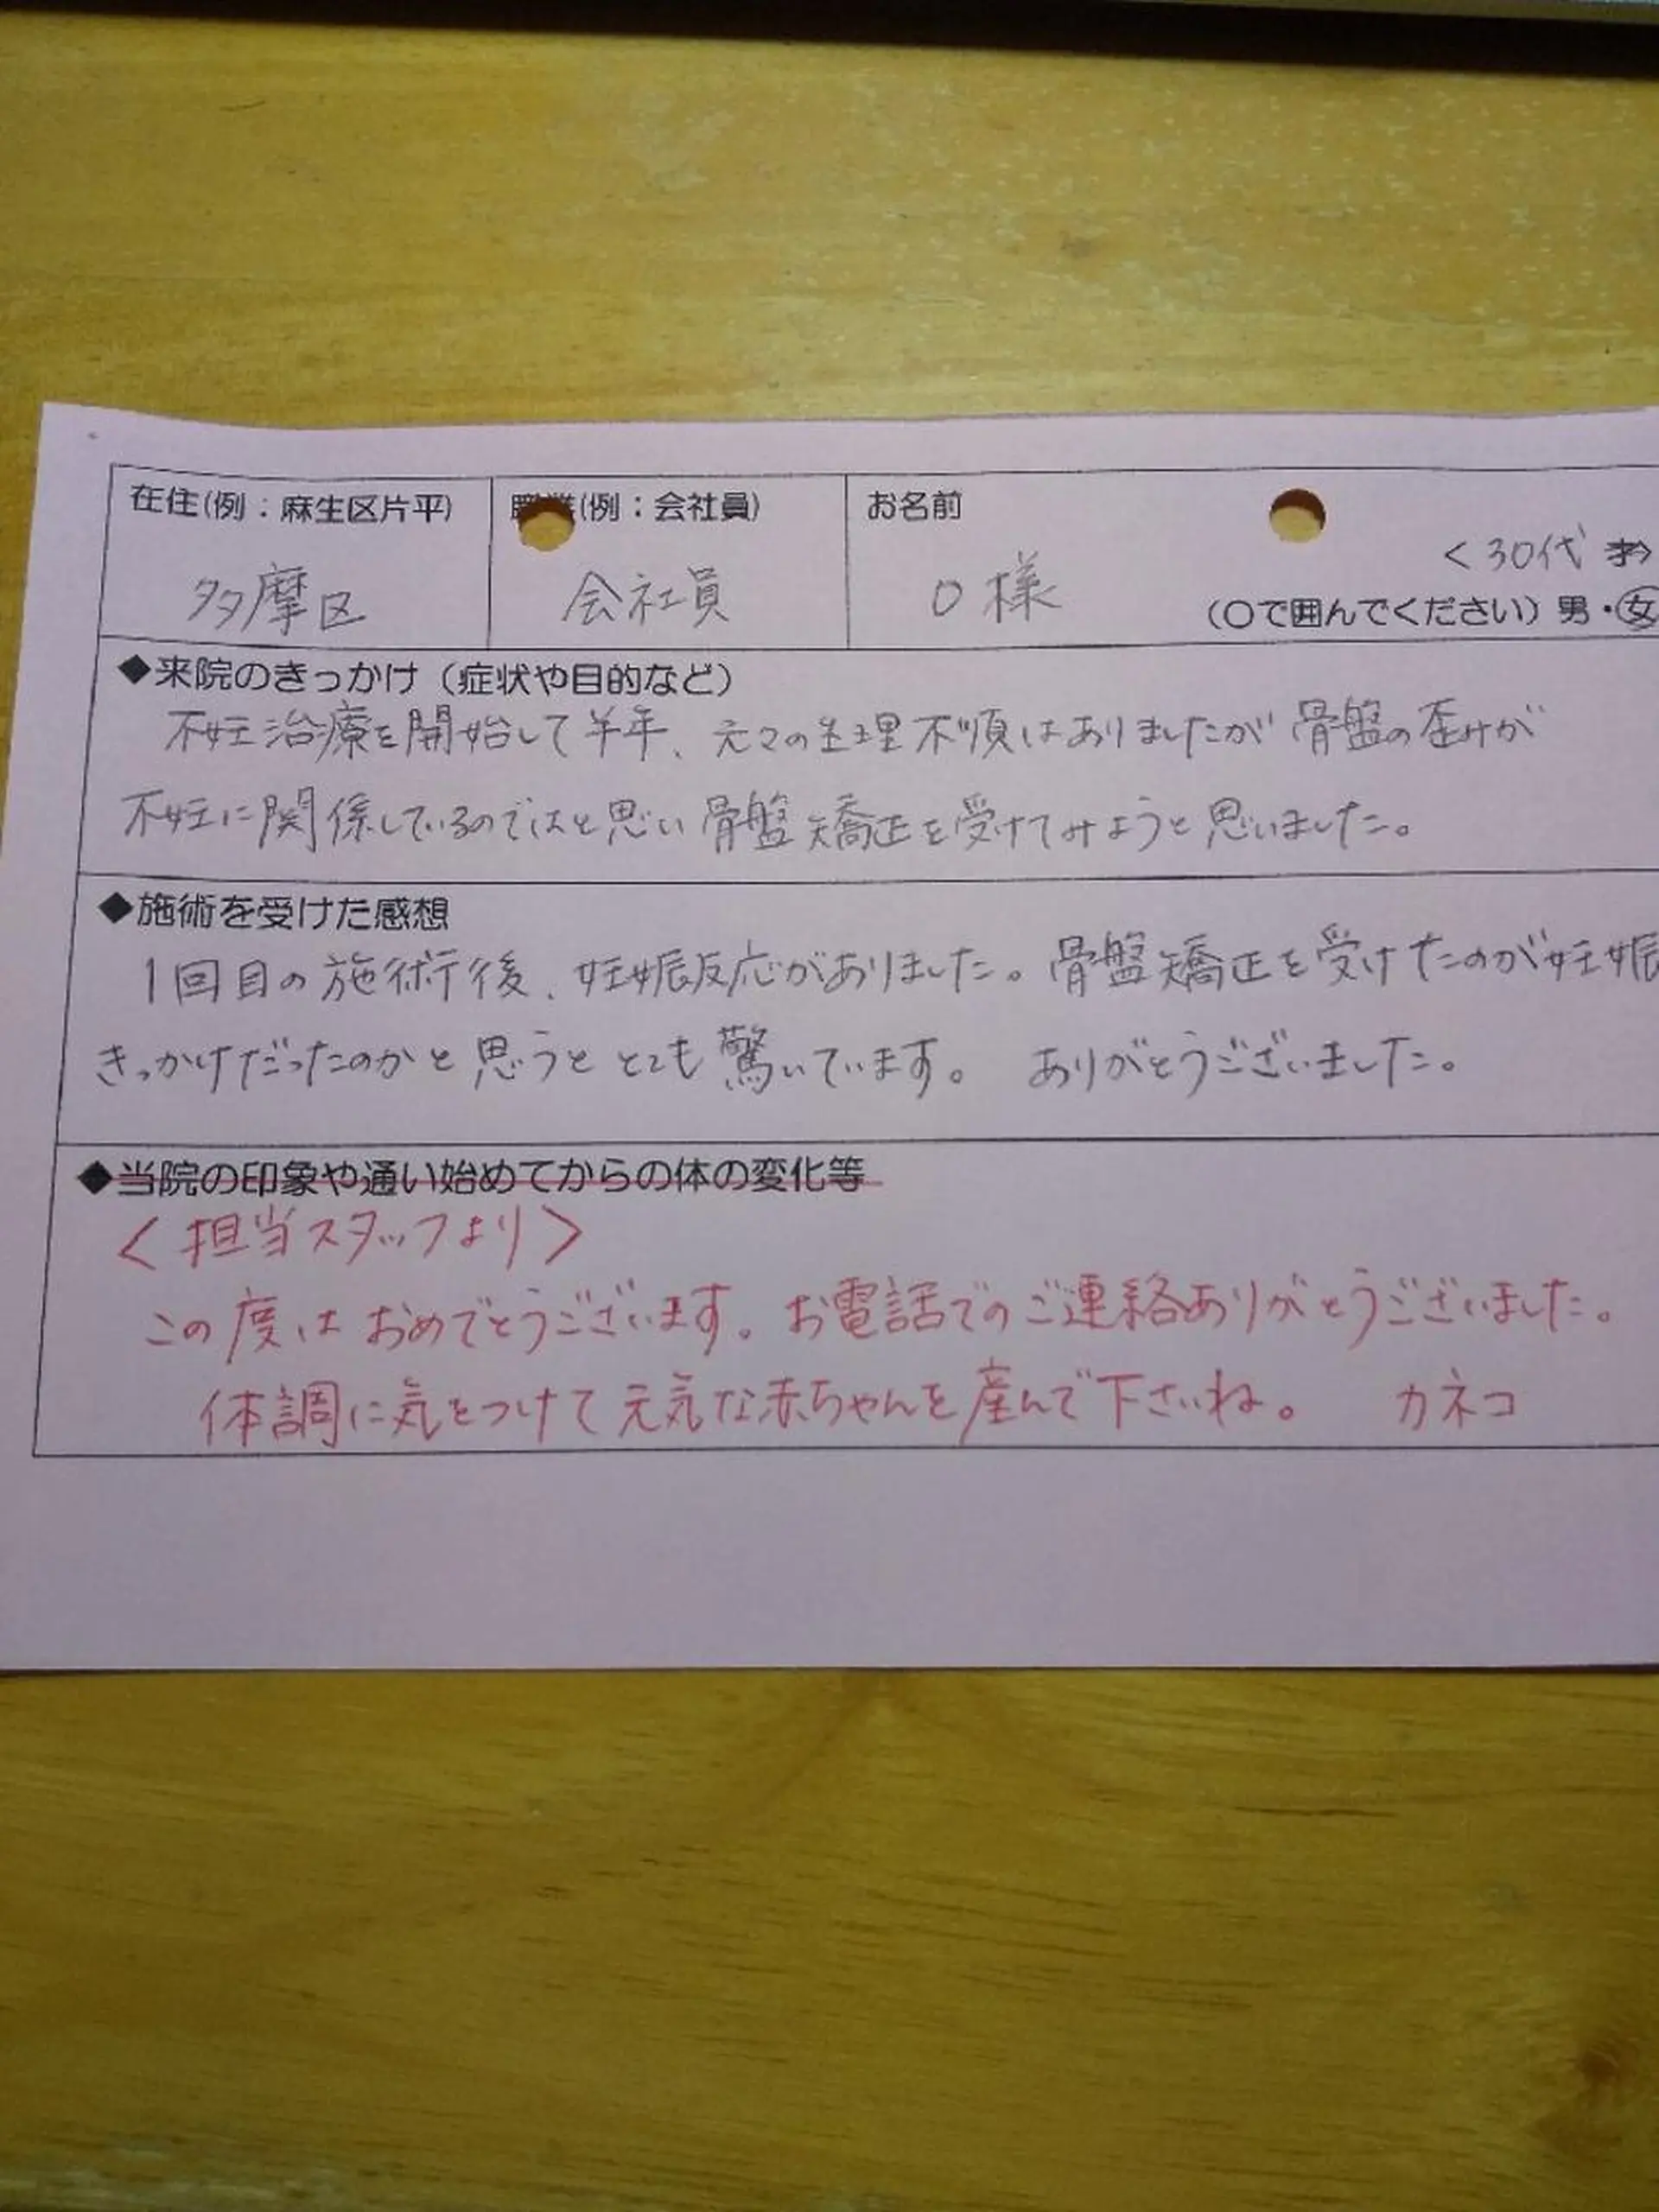 在住(例：麻生区片平)
職業(例：会社員)
お名前
<30代
多摩区
会社員
O様
(〇で囲んでください) 男・女
◆来院のきっかけ（症状や目的など）
不妊治療を開始して半年、元々の生理不順はありましたが骨盤の歪みが
不妊に関係しているのではと思い骨盤矯正を受けてみようと思いました。
◆施術を受けた感想
1回目の施術後、妊娠反応がありました。骨盤矯正を受けたのが妊娠
きっかけだったのかと思うととても驚いています。 ありがとうございました。
◆当院の印象や通い始めてからの体の変化等
<担当スタッフより>
この度はおめでとうございます。お電話でのご連絡ありがとうございました。
体調に気をつけて元気な赤ちゃんを産んで下さいね。 カネコ